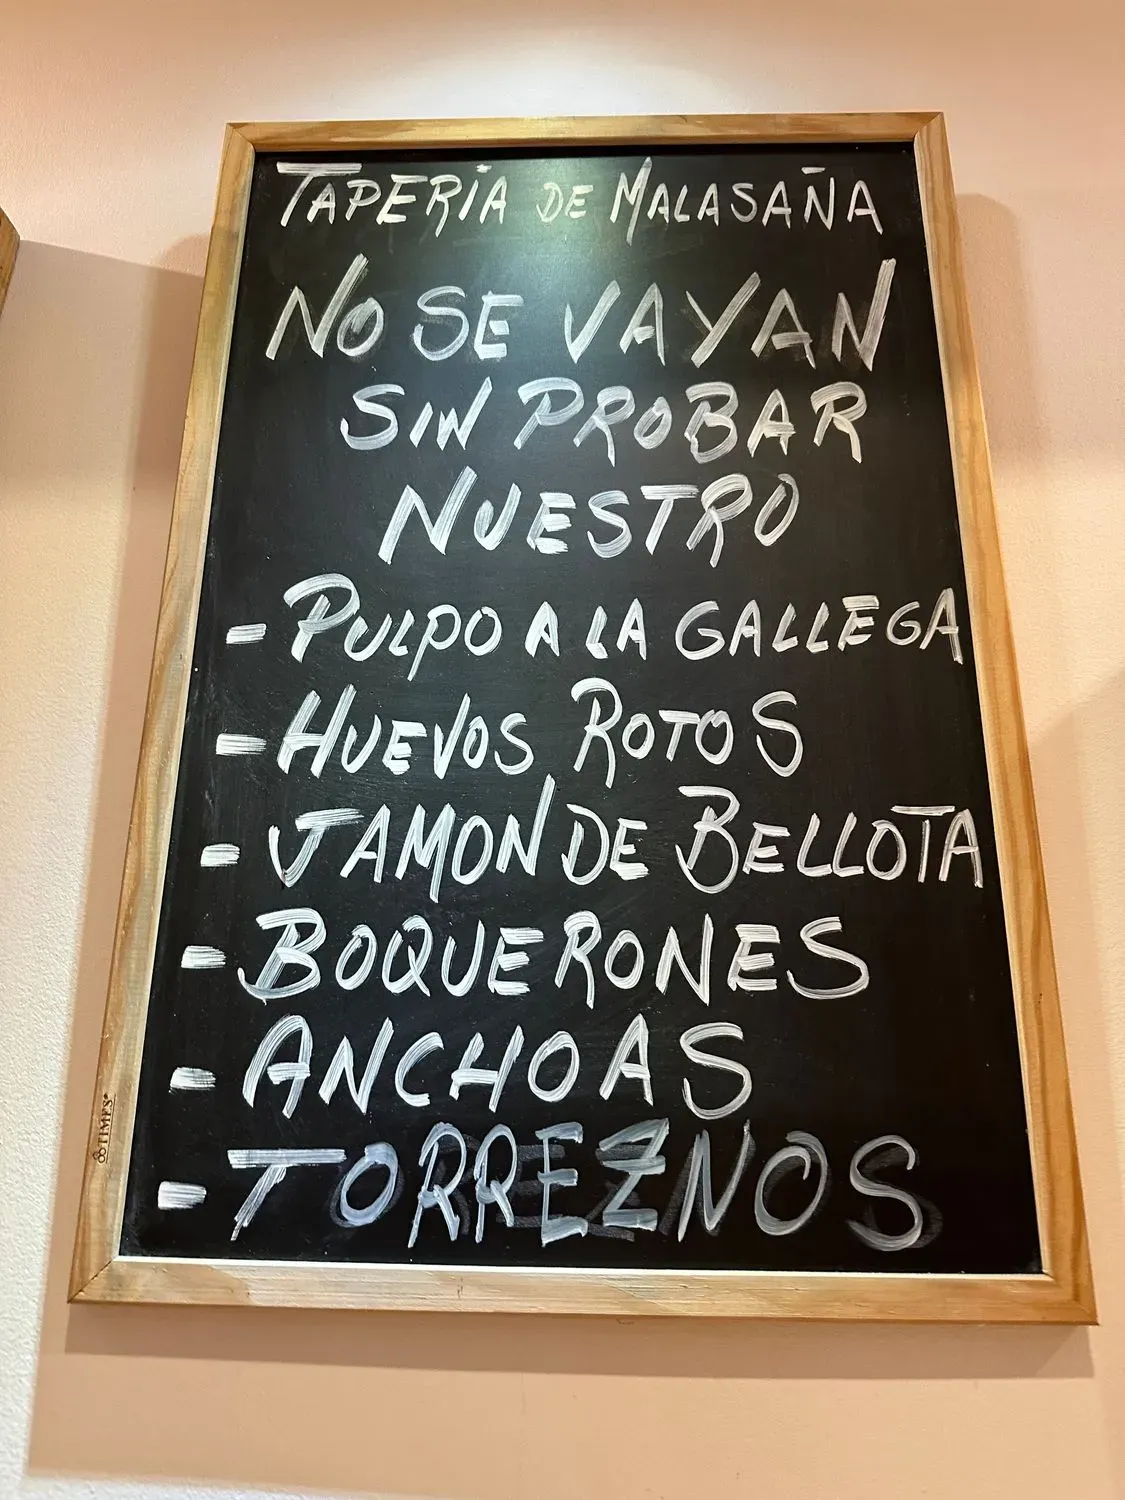 TAPERÍA DE MALASAÑA
NO SE VAYAN
SIN PROBAR
NUESTRO
- PULPO A LA GALLEGA
- HUEVOS ROTOS
- JAMON DE BELLOTA
- BOQUERONES
- ANCHOAS
- TORREZNOS
TIMES®